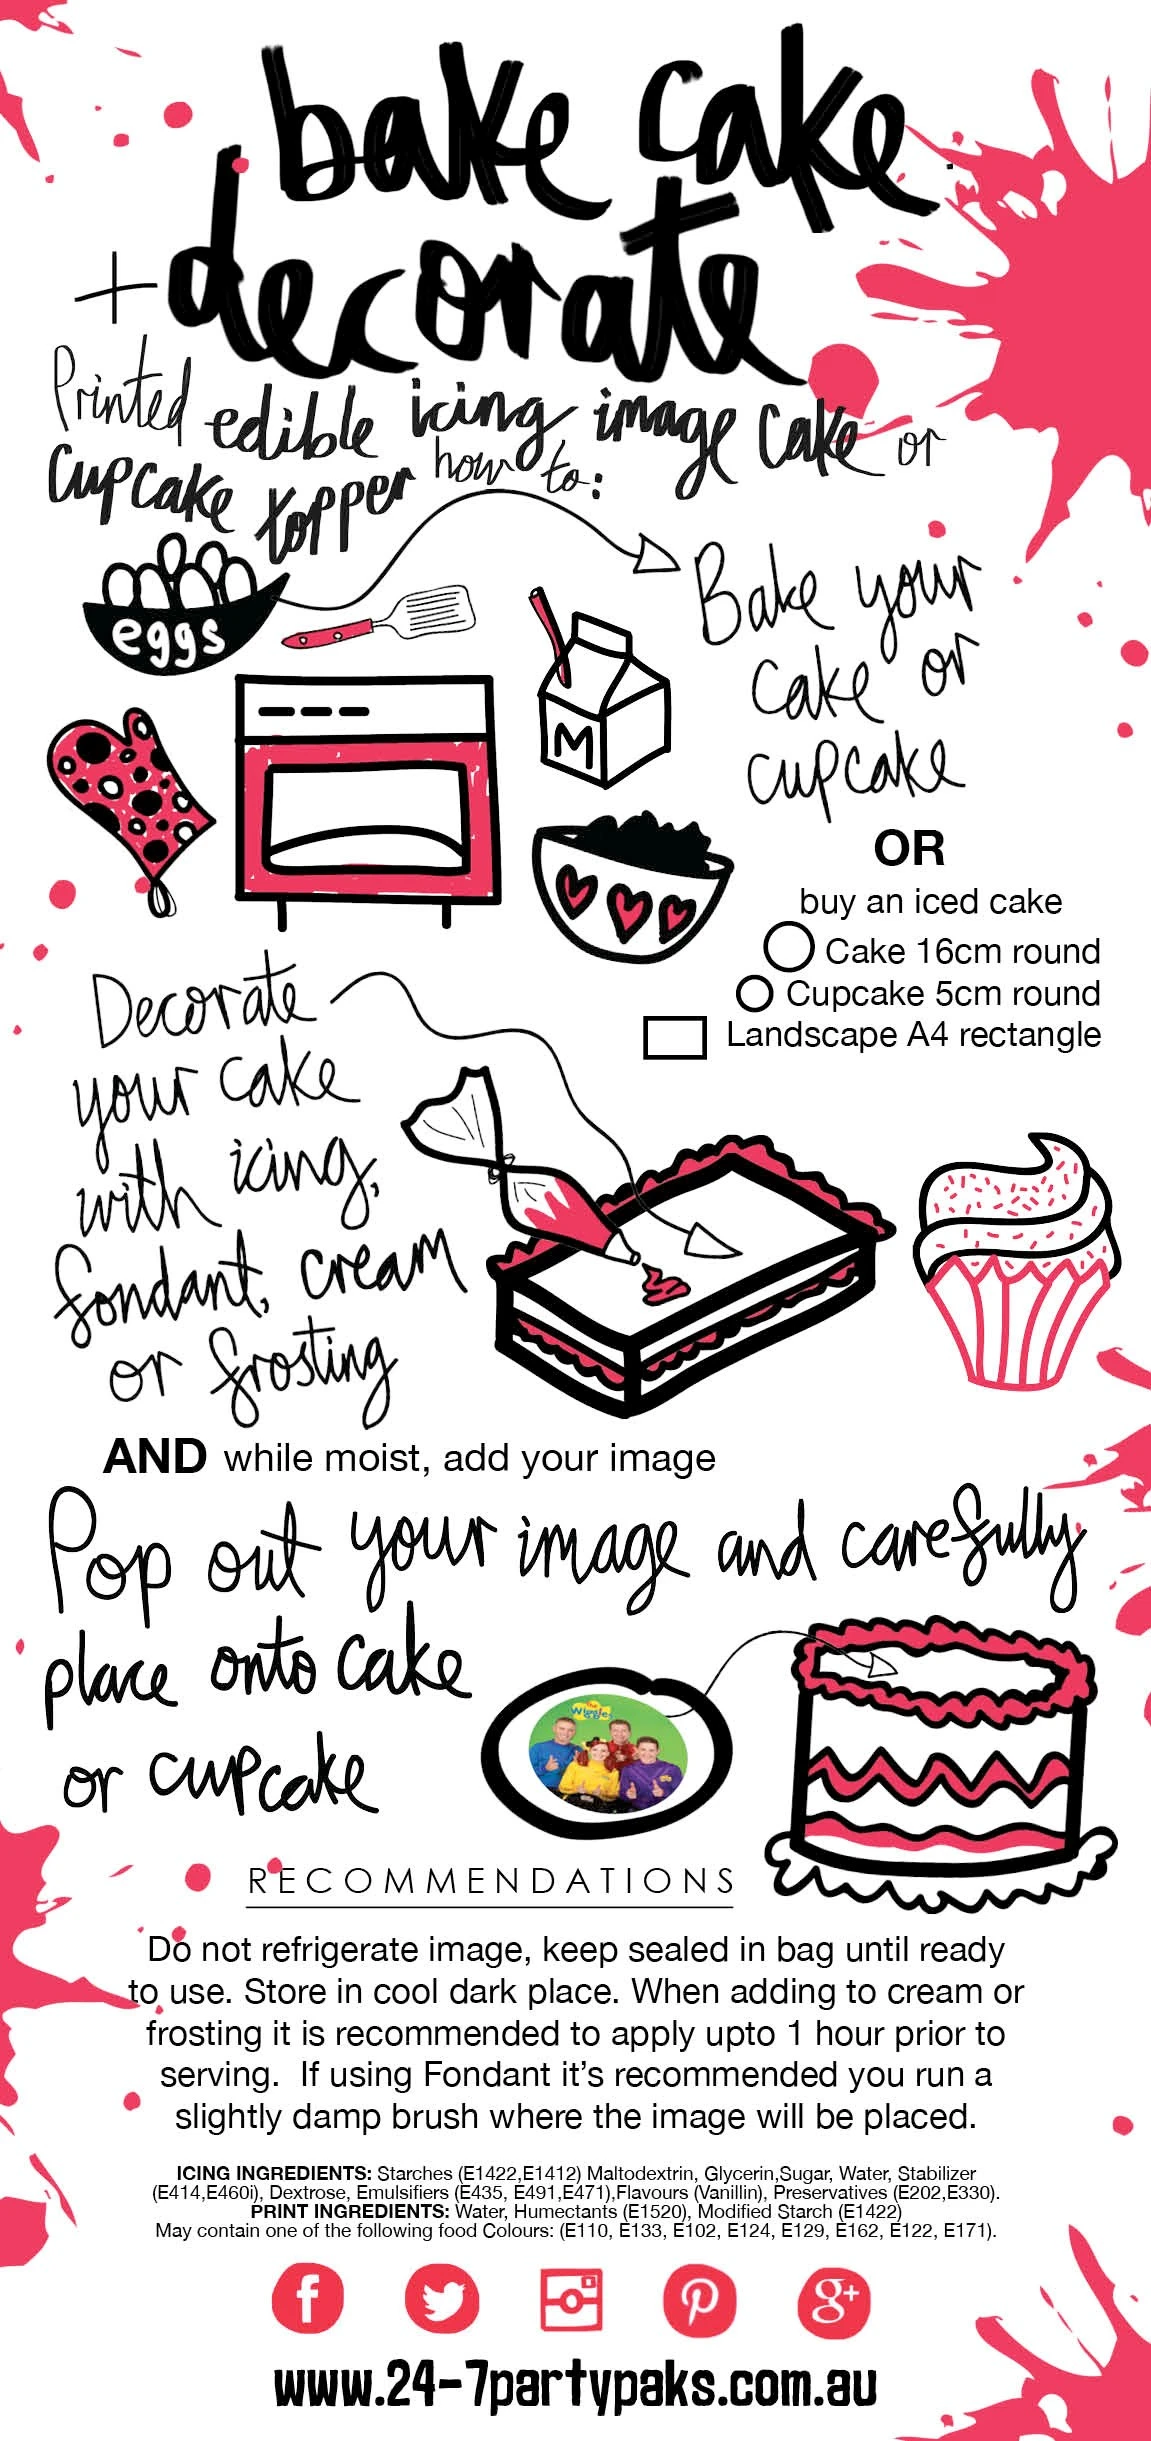 bake cake
+ decorate
Printed edible icing image cake or
cupcake topper how to:
eggs
M
Bake your
cake or
cupcake
OR
buy an iced cake
Cake 16cm round
Cupcake 5cm round
Landscape A4 rectangle
Decorate
your cake
with icing,
fondant, cream
or frosting
AND while moist, add your image
Pop out your image and carefully
place onto cake
or cupcake
The
Wiggles
RECOMMENDATIONS
Do not refrigerate image, keep sealed in bag until ready
to use. Store in cool dark place. When adding to cream or
frosting it is recommended to apply upto 1 hour prior to
serving. If using Fondant it's recommended you run a
slightly damp brush where the image will be placed.
ICING INGREDIENTS: Starches (E1422,E1412) Maltodextrin, Glycerin,Sugar, Water, Stabilizer
(E414,E460i), Dextrose, Emulsifiers (E435, E491,E471),Flavours (Vanillin), Preservatives (E202,E330).
PRINT INGREDIENTS: Water, Humectants (E1520), Modified Starch (E1422)
May contain one of the following food Colours: (E110, E133, E102, E124, E129, E162, E122, E171).
f
g+
www.24-7partypaks.com.au